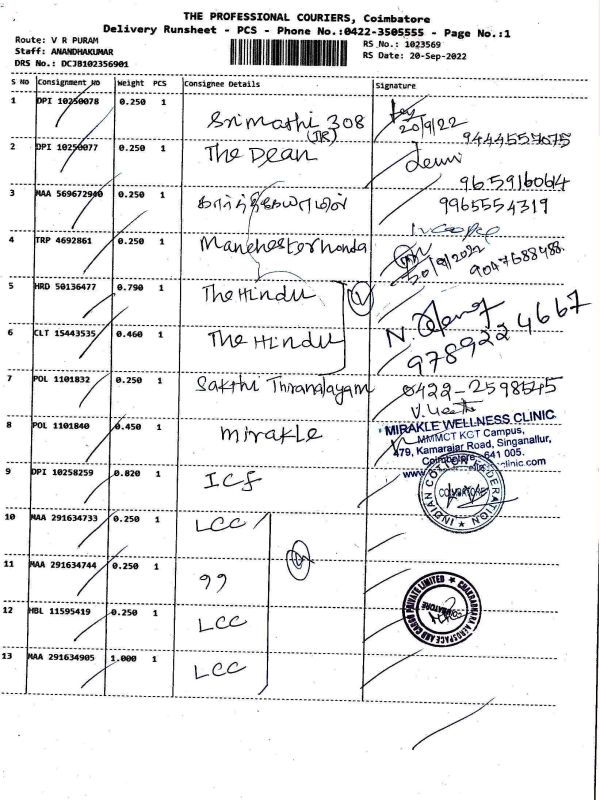 THE PROFESSIONAL COURIERS, Coimbatore
Delivery Runsheet - PCS - Phone No.:0422-3505555 - Page No.:1
Route: V R PURAM
Staff: ANANDHAKUMAR
DRS No.: DCJB102356901
RS No.: 1023569
RS Date: 20-Sep-2022
S No Consignment NO Weight PCS Consignee Details Signature
1 DPI 10250078 0.250 1 Srimathi 308 (JR) 20/9/22 9444557075
2 DPI 10250077 0.250 1 The Dean 9659160614
3 MAA 569672940 0.250 1 9965554319
4 TRP 4692861 0.250 1 Manchester honda 20/9/2022 9047688488
5 HRD 50136477 0.790 1 The Hindu
6 CLT 15443535 0.460 1 The Hindu 9789224667
7 POL 1101832 0.250 1 Sakthi Thiranalayam 0422-2598545
8 POL 1101840 0.450 1 mirakle
MIRAKLE WELLNESS CLINIC
MMMCT KCT Campus,
479, Kamarajar Road, Singanallur,
Coimbatore - 641 005.
9 DPI 10258259 0.820 1 ICF
INDIAN COTTON FEDERATION
COIMBATORE
10 MAA 291634733 0.250 1 LCC
11 MAA 291634744 0.250 1 99
12 HBL 11595419 0.250 1 LCC
CHAKRADHARA AEROSPACE AND CARGO PRIVATE LIMITED
13 MAA 291634905 1.000 1 LCC